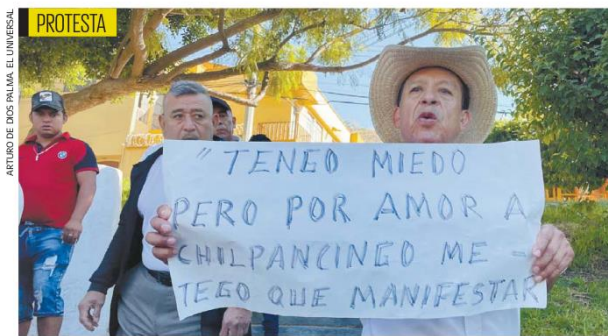 PROTESTA
ARTURO DE DIOS PALMA. EL UNIVERSAL
"TENGO MIEDO
PERO POR AMOR A
CHILPANCINGO ME
TEGO QUE MANIFESTAR